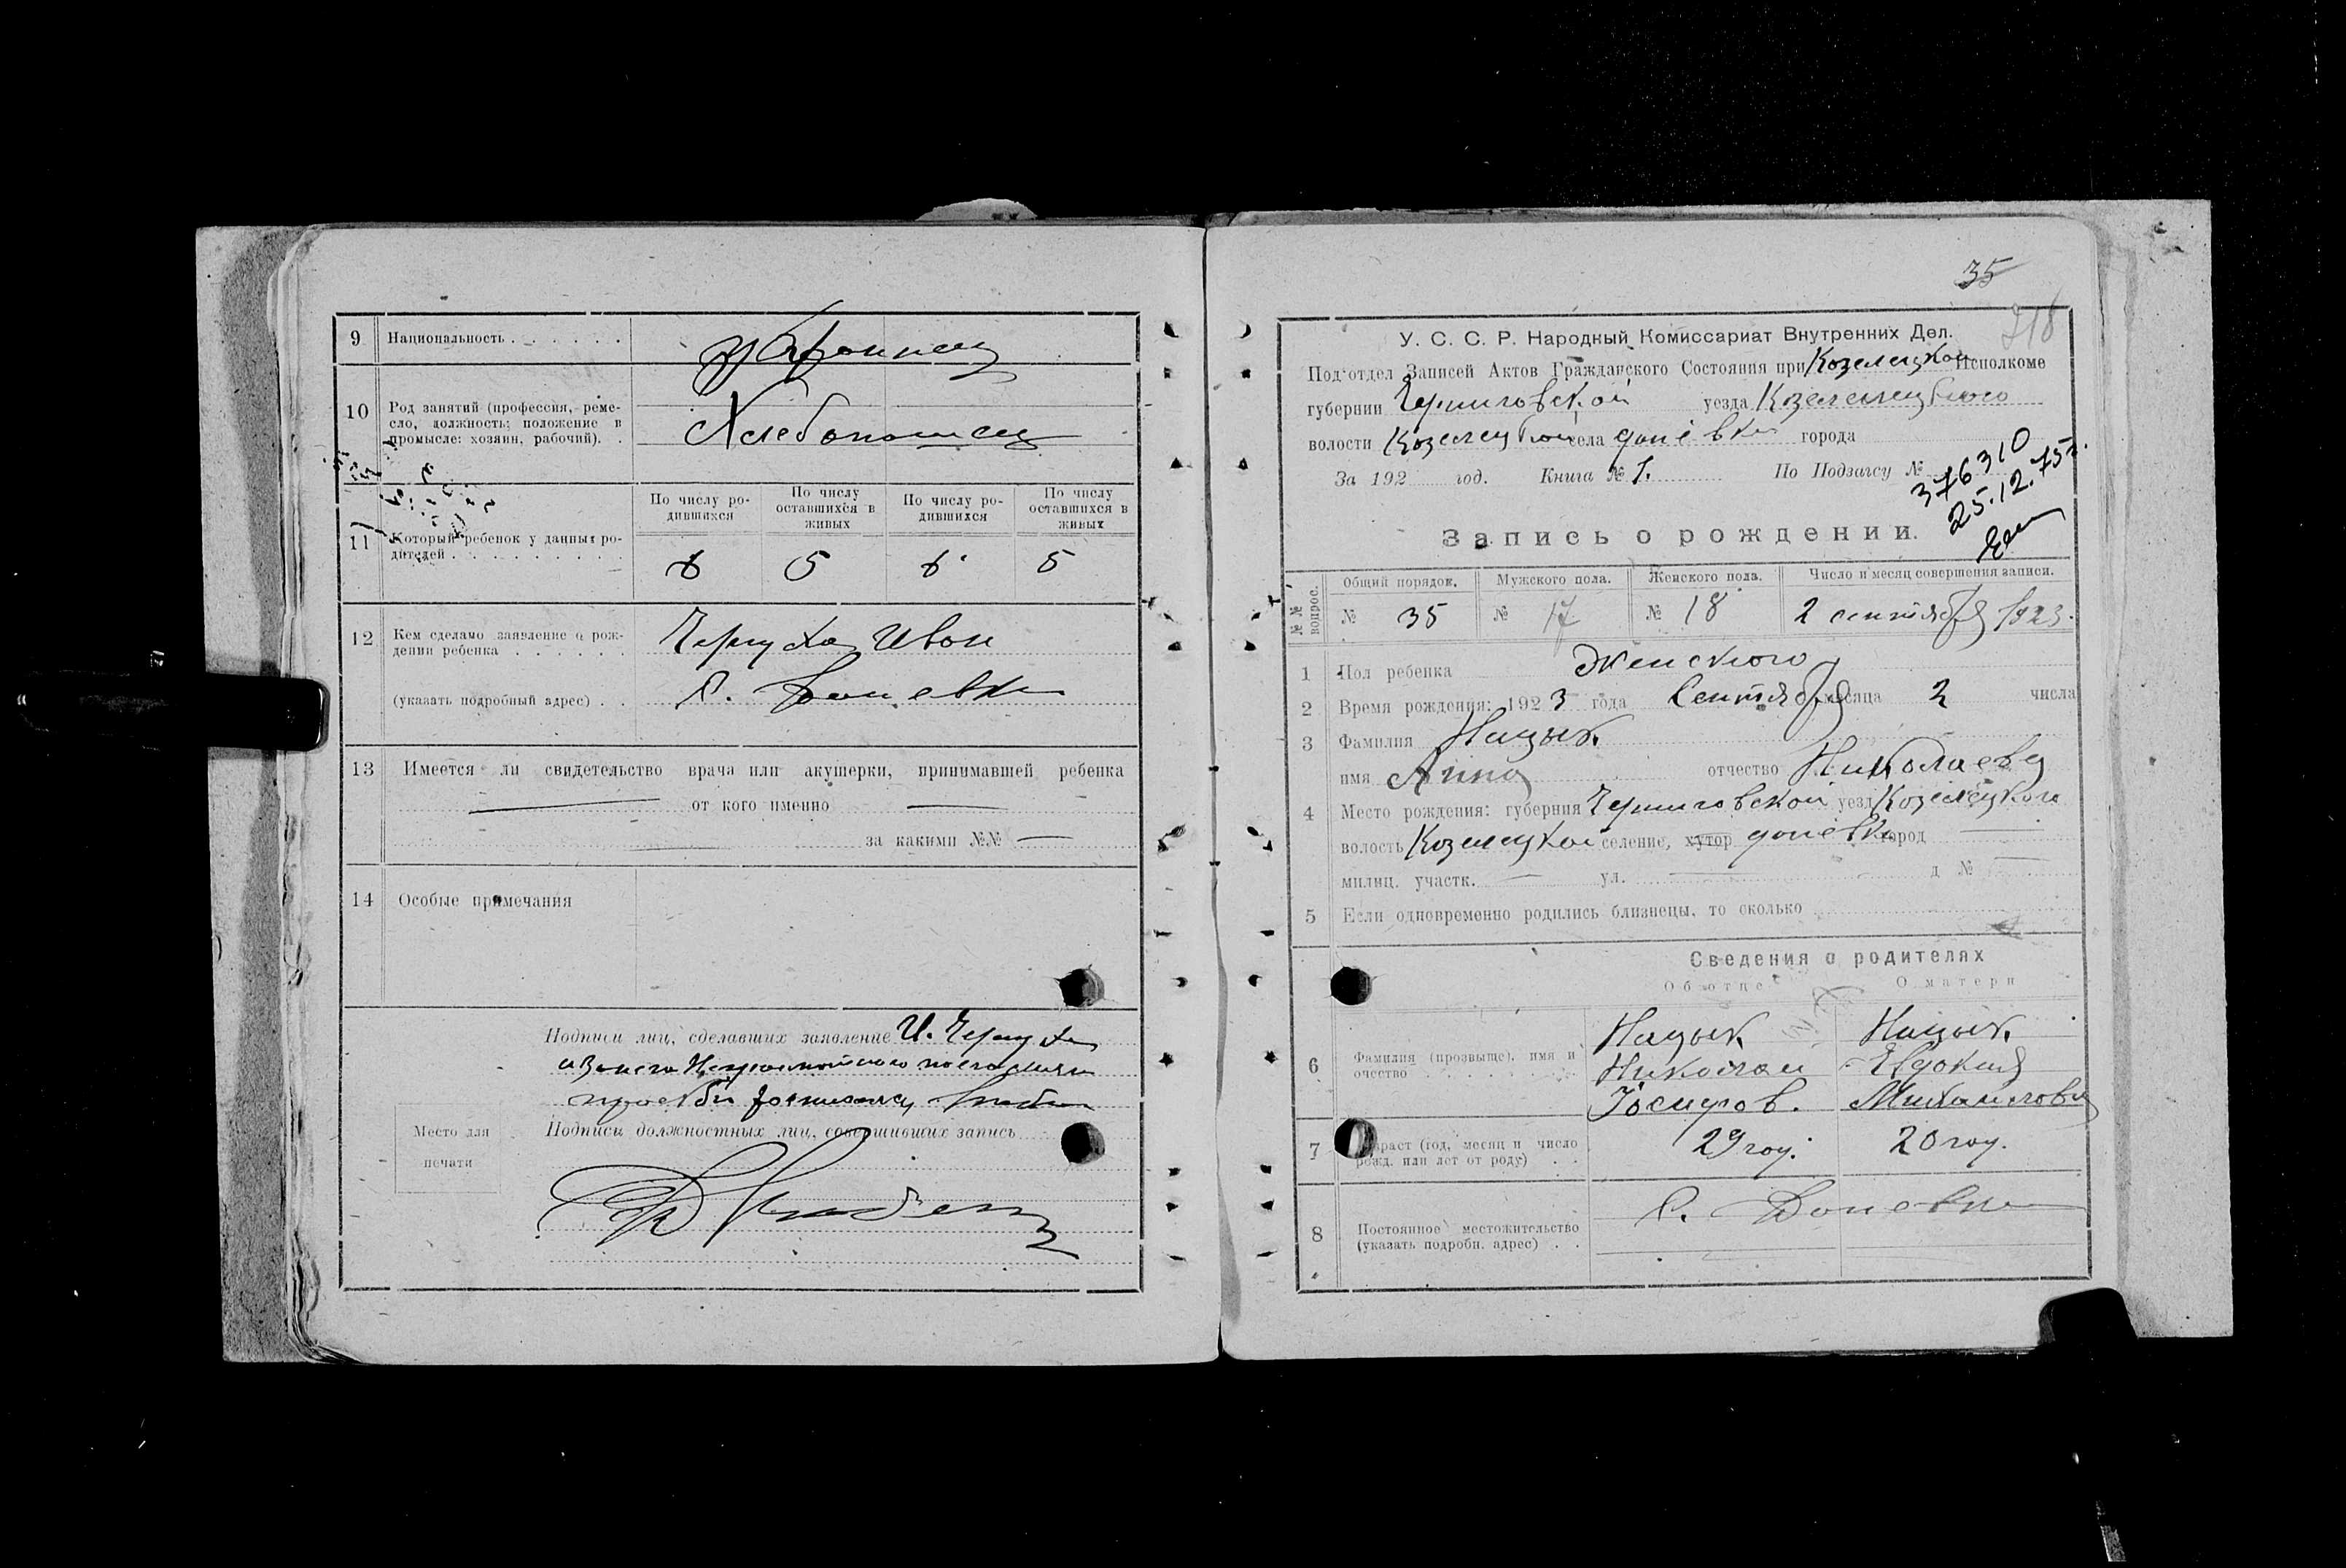 9 Национальность
10 Род занятий (профессия, реме-
сло, должность; положение в
промысле: хозяин, рабочий).
Хлебопашец
11 Который ребенок у данных ро-
дителей
По числу ро-
дившихся
По числу
оставшихся в
живых
По числу ро-
дившихся
По числу
оставшихся в
живых
6 5 6 5
12 Кем сделано заявление о рож-
дении ребенка
Иван
(указать подробный адрес) С. Даневка
13 Имеется ли свидетельство врача или акушерки, принимавшей ребенка
от кого именно
за какими №№
14 Особые примечания
Подписи лиц, сделавших заявление И.
Место для
печати
Подписи должностных лиц, совершивших запись
35
318
У. С. С. Р. Народный Комиссариат Внутренних Дел.
Под'отдел Записей Актов Гражданского Состояния при Козелецком Исполкоме
губернии Черниговской уезда Козелецкого
волости Козелецкой села Даневки города
За 192 год. Книга № 1. По Подзагсу №
376310
25.12.75г.
Запись о рождении.
№№ вопрос.
Общий порядок. Мужского пола. Женского пола. Число и месяц совершения записи.
№ 35 № 17 № 18 2 сентября 1923.
1 Пол ребенка Женского
2 Время рождения: 1923 года Сентября месяца 2 числа
3 Фамилия Нацык
имя Анна отчество Николаевна
4 Место рождения: губерния Черниговской уезд Козелецкого
волость Козелецкой селение, хутор Даневка город
милиц. участк. ул. д №
5 Если одновременно родились близнецы, то сколько
Сведения о родителях
Об отце О матери
6 Фамилия (прозвище), имя и
очество
Нацык Нацык
Николай Евдокия
Михайловна
7 Возраст (год, месяц и число
рожд. или лет от роду)
29 год. 20 год.
8 Постоянное местожительство
(указать подробн. адрес)
С. Даневка